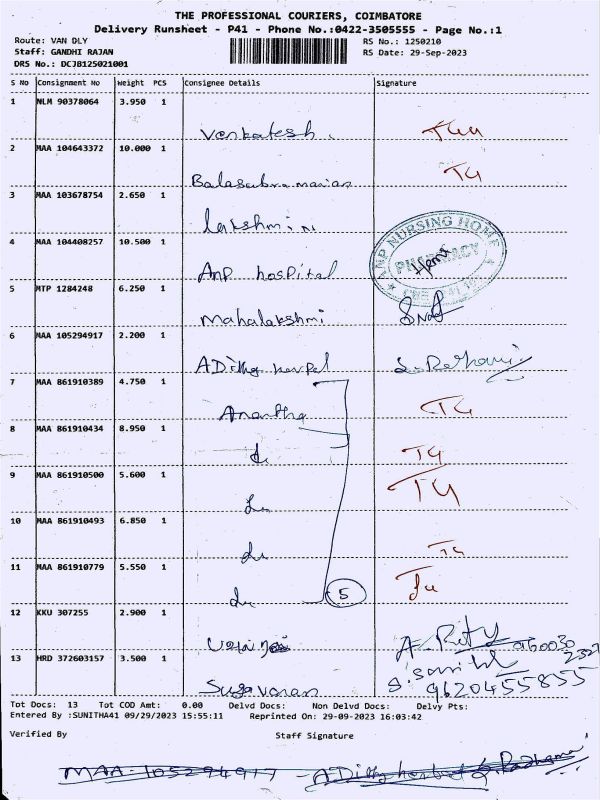 THE PROFESSIONAL COURIERS, COIMBATORE
Delivery Runsheet - P41 - Phone No.:0422-3505555 - Page No.:1
Route: VAN DLY RS No.: 1250210
Staff: GANDHI RAJAN RS Date: 29-Sep-2023
DRS No.: DCJB125021001
S No Consignment No Weight PCS Consignee Details Signature
1 NLM 90378064 3.950 1
Venkatesh
2 MAA 104643372 10.000 1
Balasubramanian
3 MAA 103678754 2.650 1
Lakshmi N
4 MAA 104408257 10.500 1
ANP NURSING HOME
PHARMACY
Anp hospital
5 MTP 1284248 6.250 1
Mahalakshmi
6 MAA 105294917 2.200 1
7 MAA 861910389 4.750 1
Anantha
8 MAA 861910434 8.950 1
9 MAA 861910500 5.600 1
10 MAA 861910493 6.850 1
11 MAA 861910779 5.550 1
5
12 KKU 307255 2.900 1
13 HRD 372603157 3.500 1
9620455855
Sugavanan
Tot Docs: 13 Tot COD Amt: 0.00 Delvd Docs: Non Delvd Docs: Delvy Pts:
Entered By :SUNITHA41 09/29/2023 15:55:11 Reprinted On: 29-09-2023 16:03:42
Verified By Staff Signature
MAA-105294917